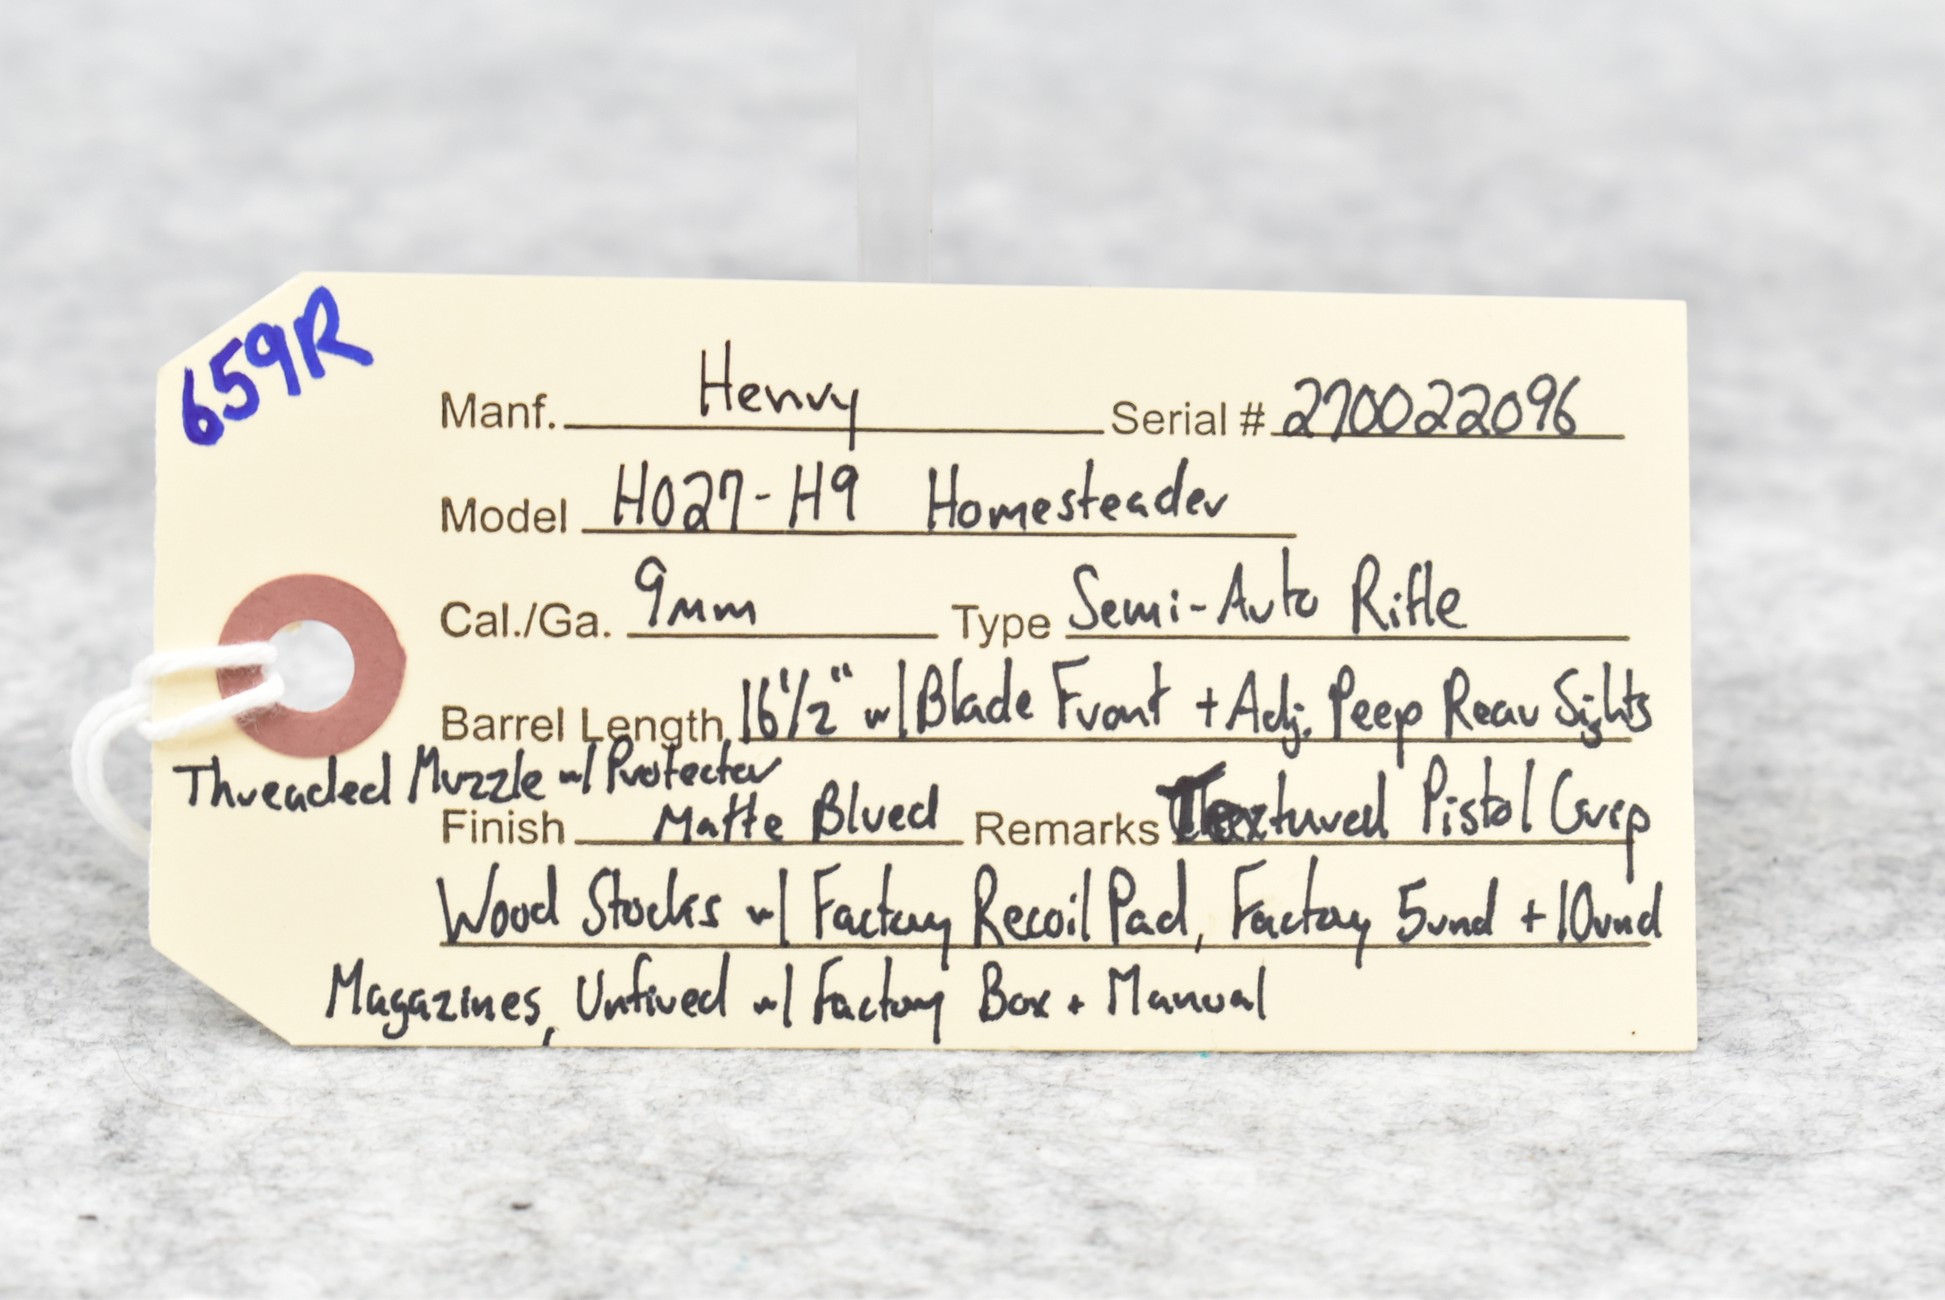 659R
Manf. Henry Serial # 270022096
Model H027-H9 Homesteader
Cal./Ga. 9mm Type Semi-Auto Rifle
Barrel Length 16 1/2" w/ Blade Front + Adj. Peep Rear Sights
Threaded Muzzle w/ Protector
Finish Matte Blued Remarks Textured Pistol Grip
Wood Stocks w/ Factory Recoil Pad, Factory 5rnd + 10rnd
Magazines, Unfired w/ Factory Box + Manual